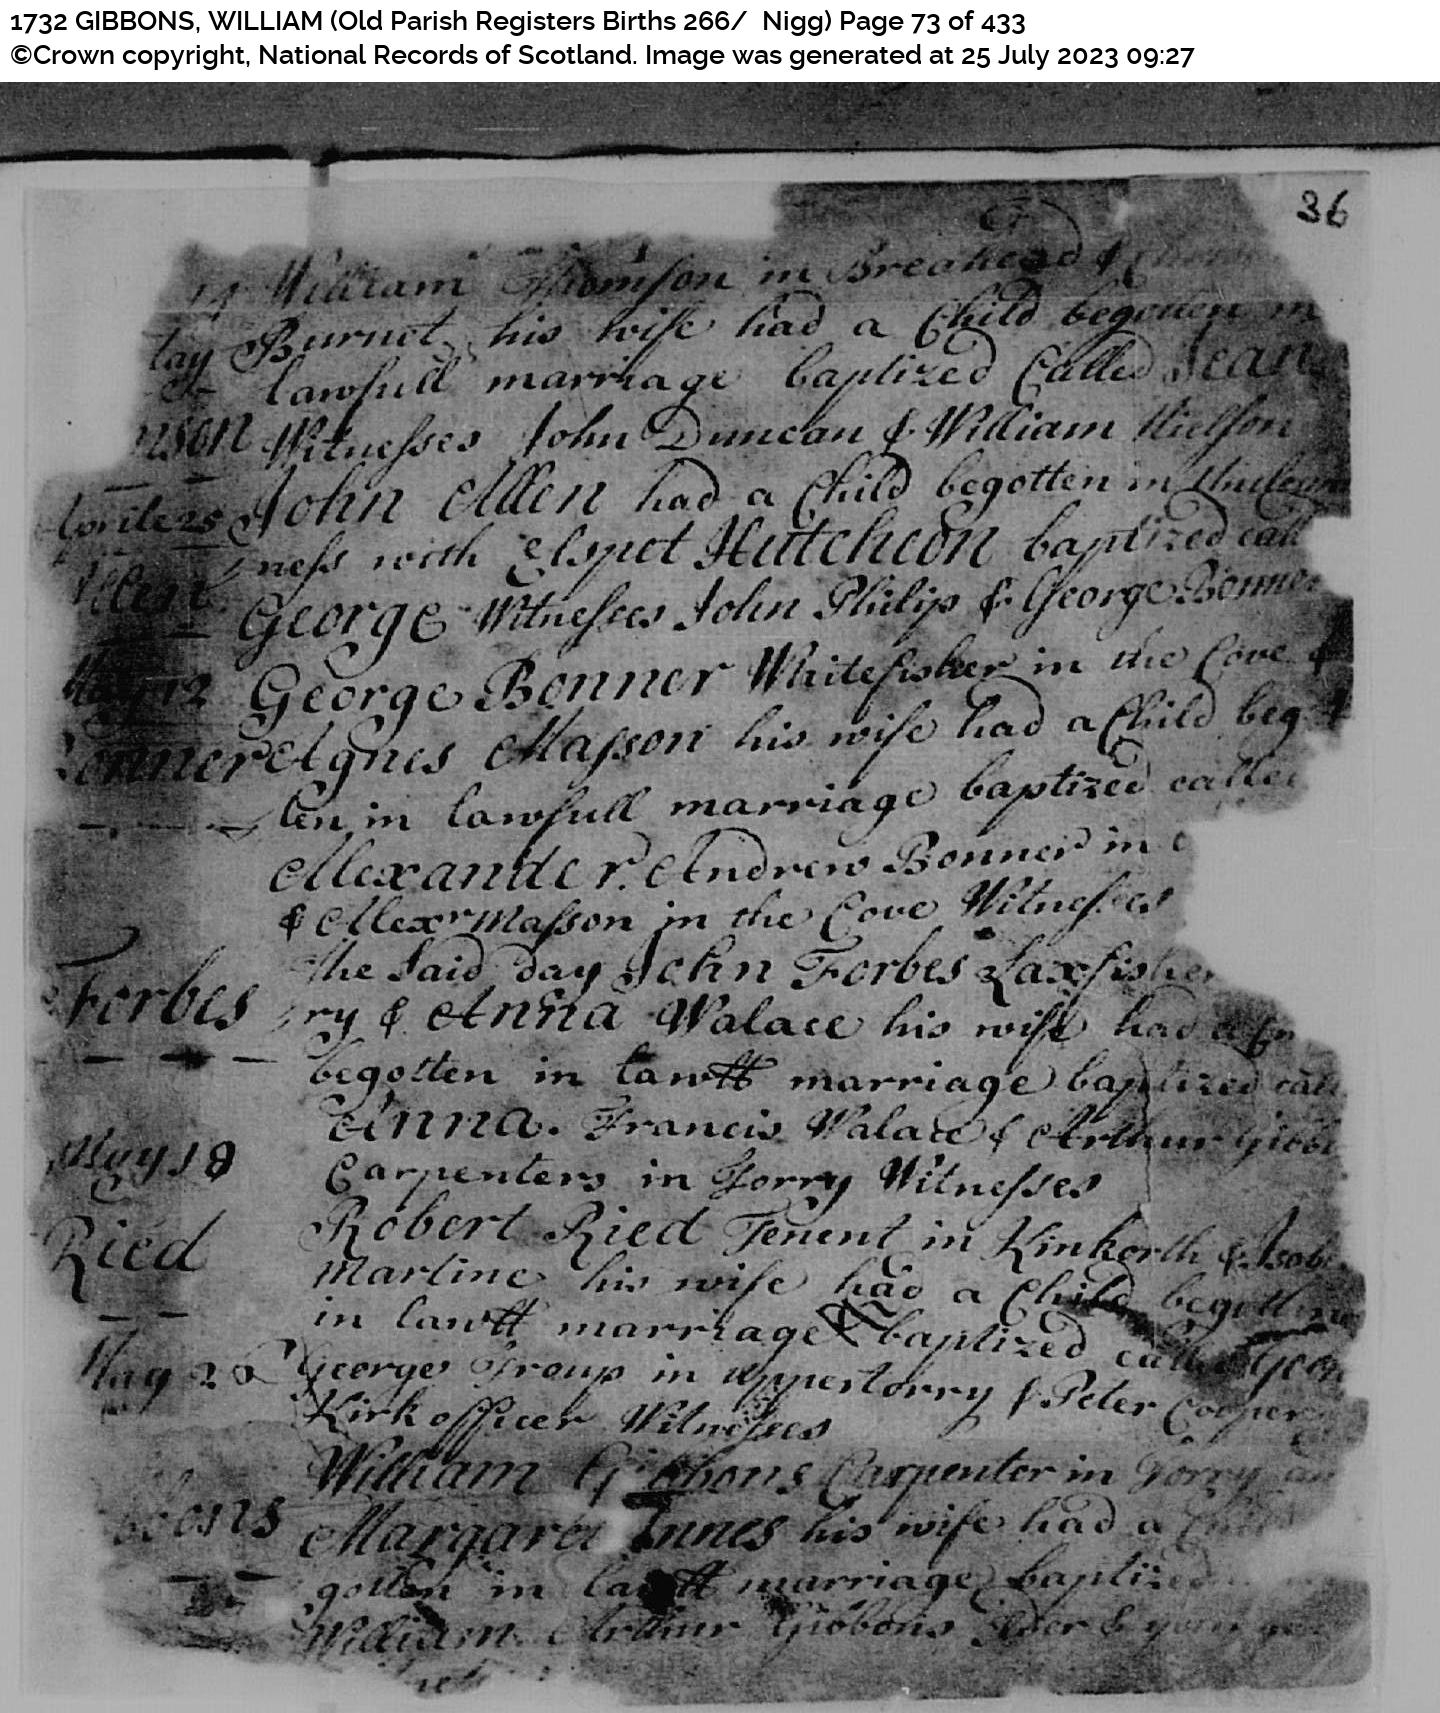 1732 GIBBONS, WILLIAM (Old Parish Registers Births 266/ Nigg) Page 73 of 433
©Crown copyright, National Records of Scotland. Image was generated at 25 July 2023 09:27
36
14 William Thomson in Breahead &
Burnet his wife had a Child begotten in
lawfull marriage baptized Called Jean
Witnesses John Duncan & William
Aprile 25 John Allen had a Child begotten in
Allen ness with Elspet Hutcheon baptized call
George Witnesses John Philip & George Bonner
May 12 George Bonner Whitefisher in the Cove &
Bonner Agnes Masson his wife had a Child beg
ten in lawfull marriage baptized called
Alexander. Andrew Bonner in
& Alexr Masson in the Cove Witnesses
the said day John Forbes Laxfisher
Forbes ry & Anna Walace his wife had a
begotten in lawll marriage baptized call
Anna. Francis Walace & Arthur Gibb
May 18 Carpenters in Torry Witnesses
Ried Robert Ried Tenent in Kinkorth & Isob
Martine his wife had a Child begotten
in lawll marriage baptized called Geor
May 2 George Group in uppertorry & Peter Cooper
Kirk officer Witnesses
William Gibbons Carpenter in Torry an
bons Margaret Innes his wife had a
gotten in lawll marriage baptized
William. Arthur Gibbons